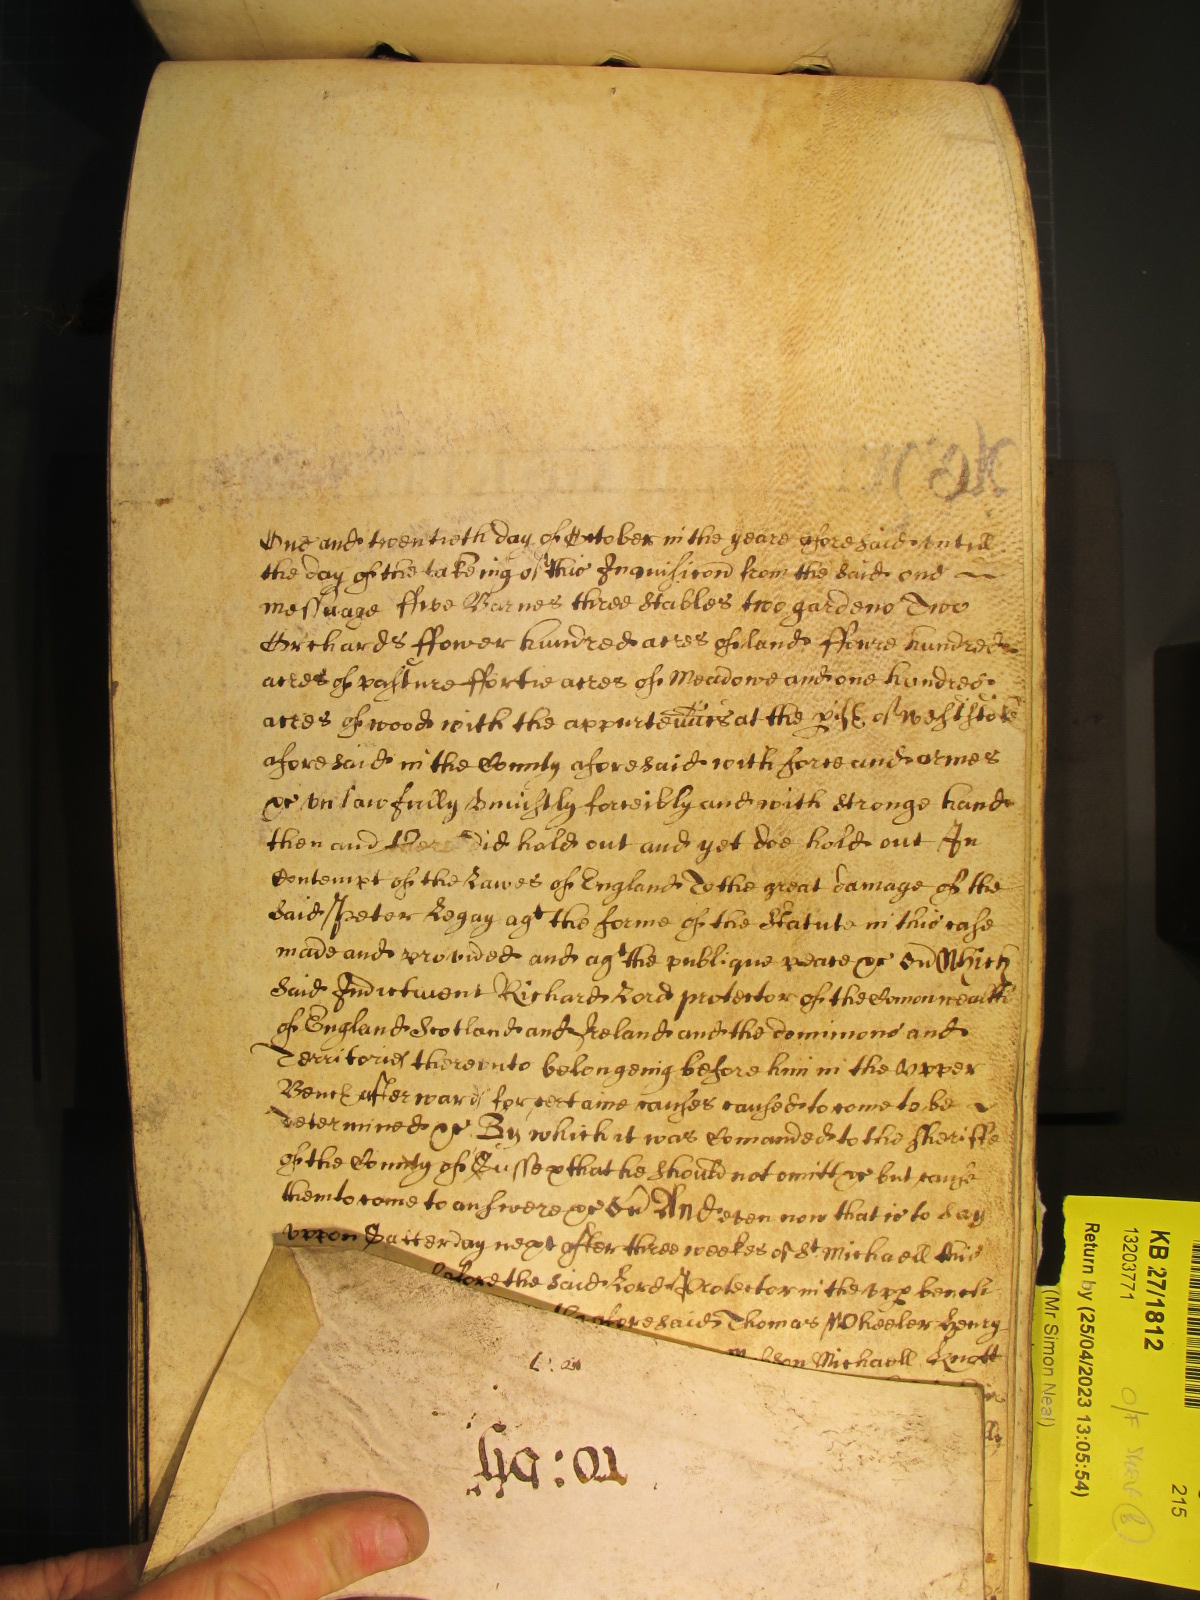 One and twentieth day of October in the yeare aforesaid untill
the day of the takeing of this Inquisicon from the said one
messuage ffive Barnes three Stables two gardens Two
Orchards ffower hundred acres of land ffowre hundred
acres of pasture ffortie acres of Meadowe and one hundred
acres of wood with the appurtenn'cs at the p'ish of Weststoke
aforesaid in the County aforesaid with force and armes
&c unlawfully Uniustly forceibly and with stronge hand
then and there did hold out and yet doe hold out In
Contempt of the Lawes of England To the great damage of the
said Peter Legay agt the forme of the Statute in this case
made and provided and agt the publique peace &c Which
said Indictment Richard Lord protector of the Comonwealth
of England Scotland and Ireland and the dominions and
Territories thereunto belongeing before him in the Upper
Bench afterwards for certaine causes caused to come to be
determined &c By which it was Comanded to the Sheriffe
of the County of Sussex that he should not omitt &c but cause
them to come to answere &c And even now that is to say
uppon Satterday next after three weekes of St Michaell this
before the said Lord Protector in the upp bench
aforesaid Thomas Wheeler Henry
Michaell Knott
KB 27/1812
13203771
Return by (25/04/2023 13:05:54)
(Mr Simon Neal)
215